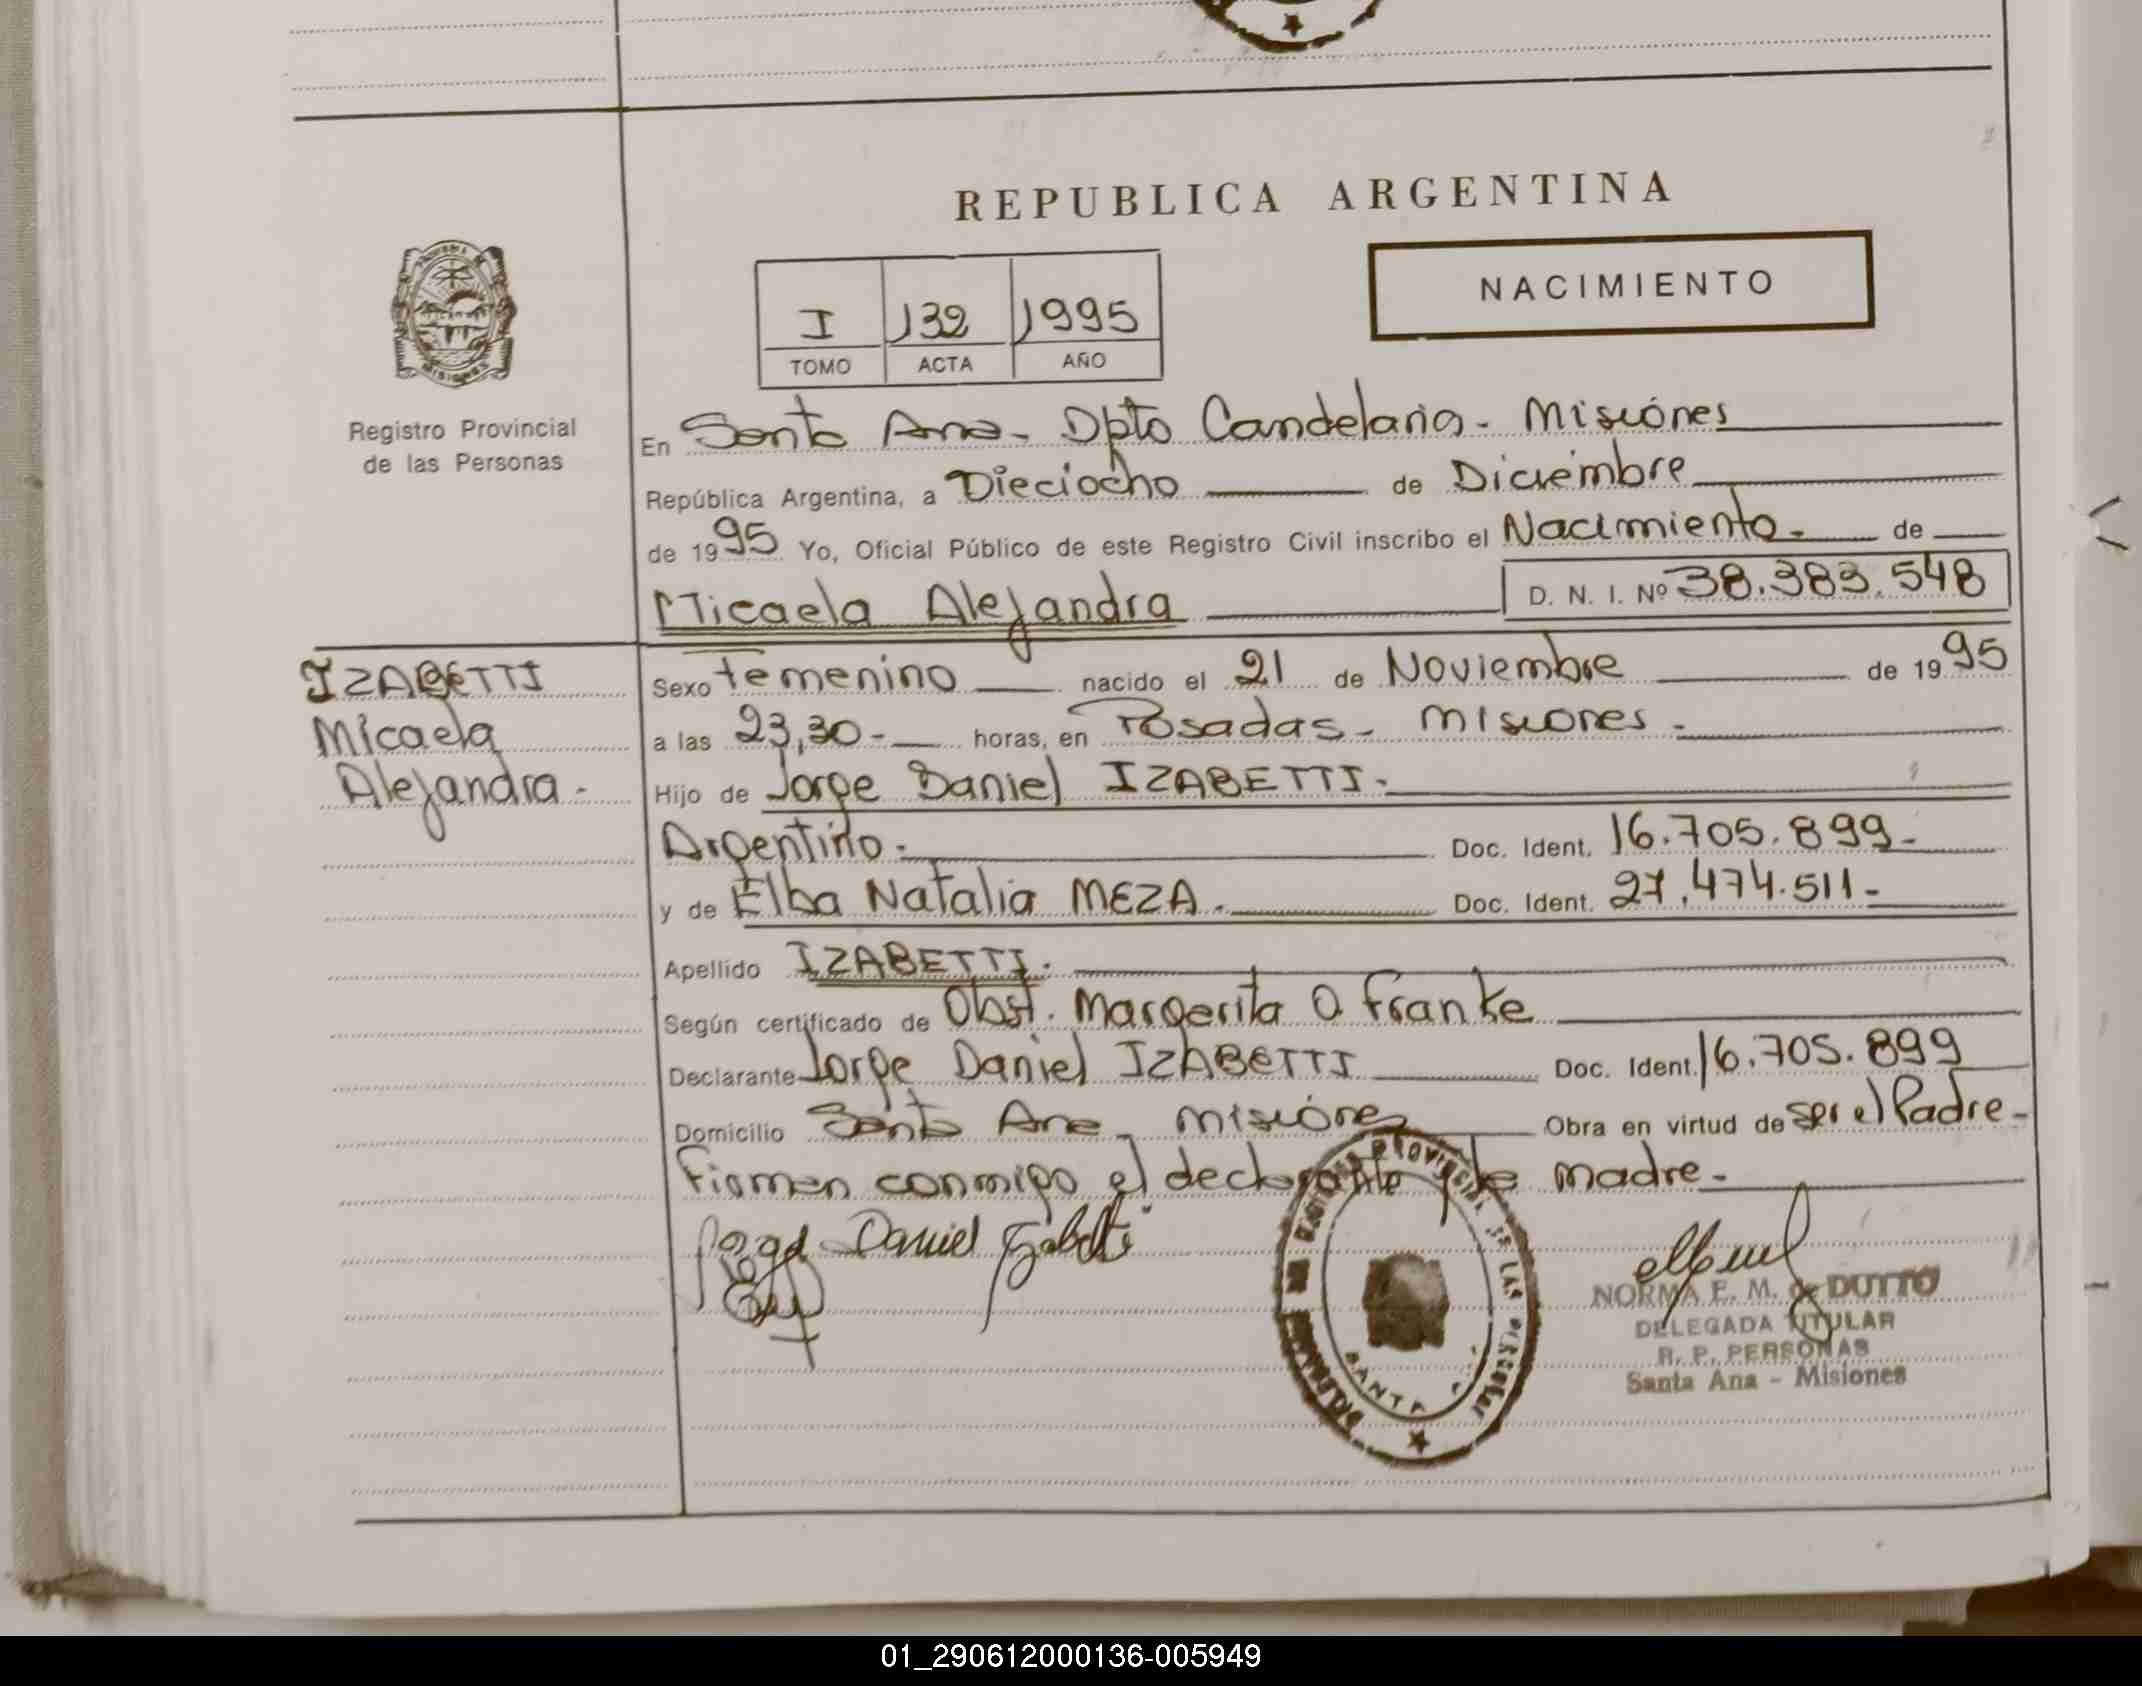 REPUBLICA ARGENTINA
NACIMIENTO
I 132 1995
TOMO ACTA AÑO
PROVINCIA DE
MISIONES
Registro Provincial
de las Personas
En Santa Ana - Dpto Candelaria - Misiones
República Argentina, a Dieciocho de Diciembre
de 1995 Yo, Oficial Público de este Registro Civil inscribo el Nacimiento. de
Micaela Alejandra D. N. I. Nº 38.383.548
IZABETTI
Micaela
Alejandra.
Sexo femenino nacido el 21 de Noviembre de 1995
a las 23,30- horas, en Posadas - Misiones -
Hijo de Jorge Daniel IZABETTI.
Argentino. Doc. Ident. 16.705.899-
y de Elba Natalia MEZA. Doc. Ident. 27.474.511-
Apellido IZABETTI.
Según certificado de Obst. Margerita O Franke
Declarante Jorge Daniel IZABETTI Doc. Ident. 16.705.899
Domicilio Santa Ana - Misiones Obra en virtud de ser el Padre-
Firman conmigo el declarante y la madre -
Jorge Daniel Izabetti
NORMA E. M. de DUTTO
DELEGADA TITULAR
R. P. PERSONAS
Santa Ana - Misiones
PROVINCIAL DE LAS PERSONAS
SANTA
01_290612000136-005949